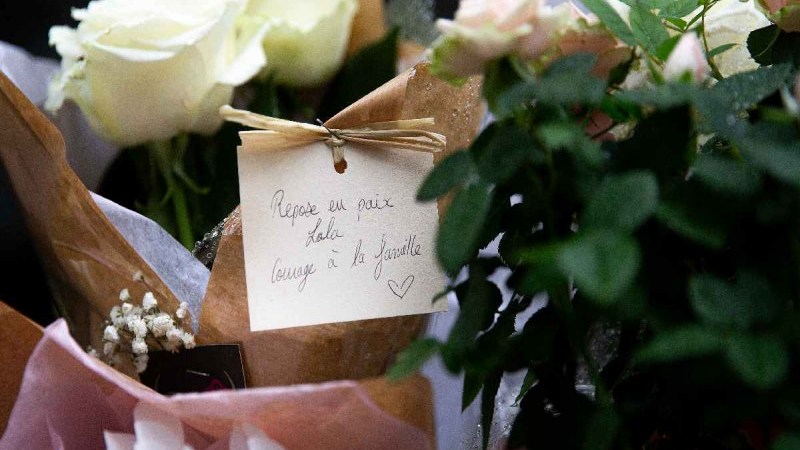 Repose en paix
Lola
Courage à la famille